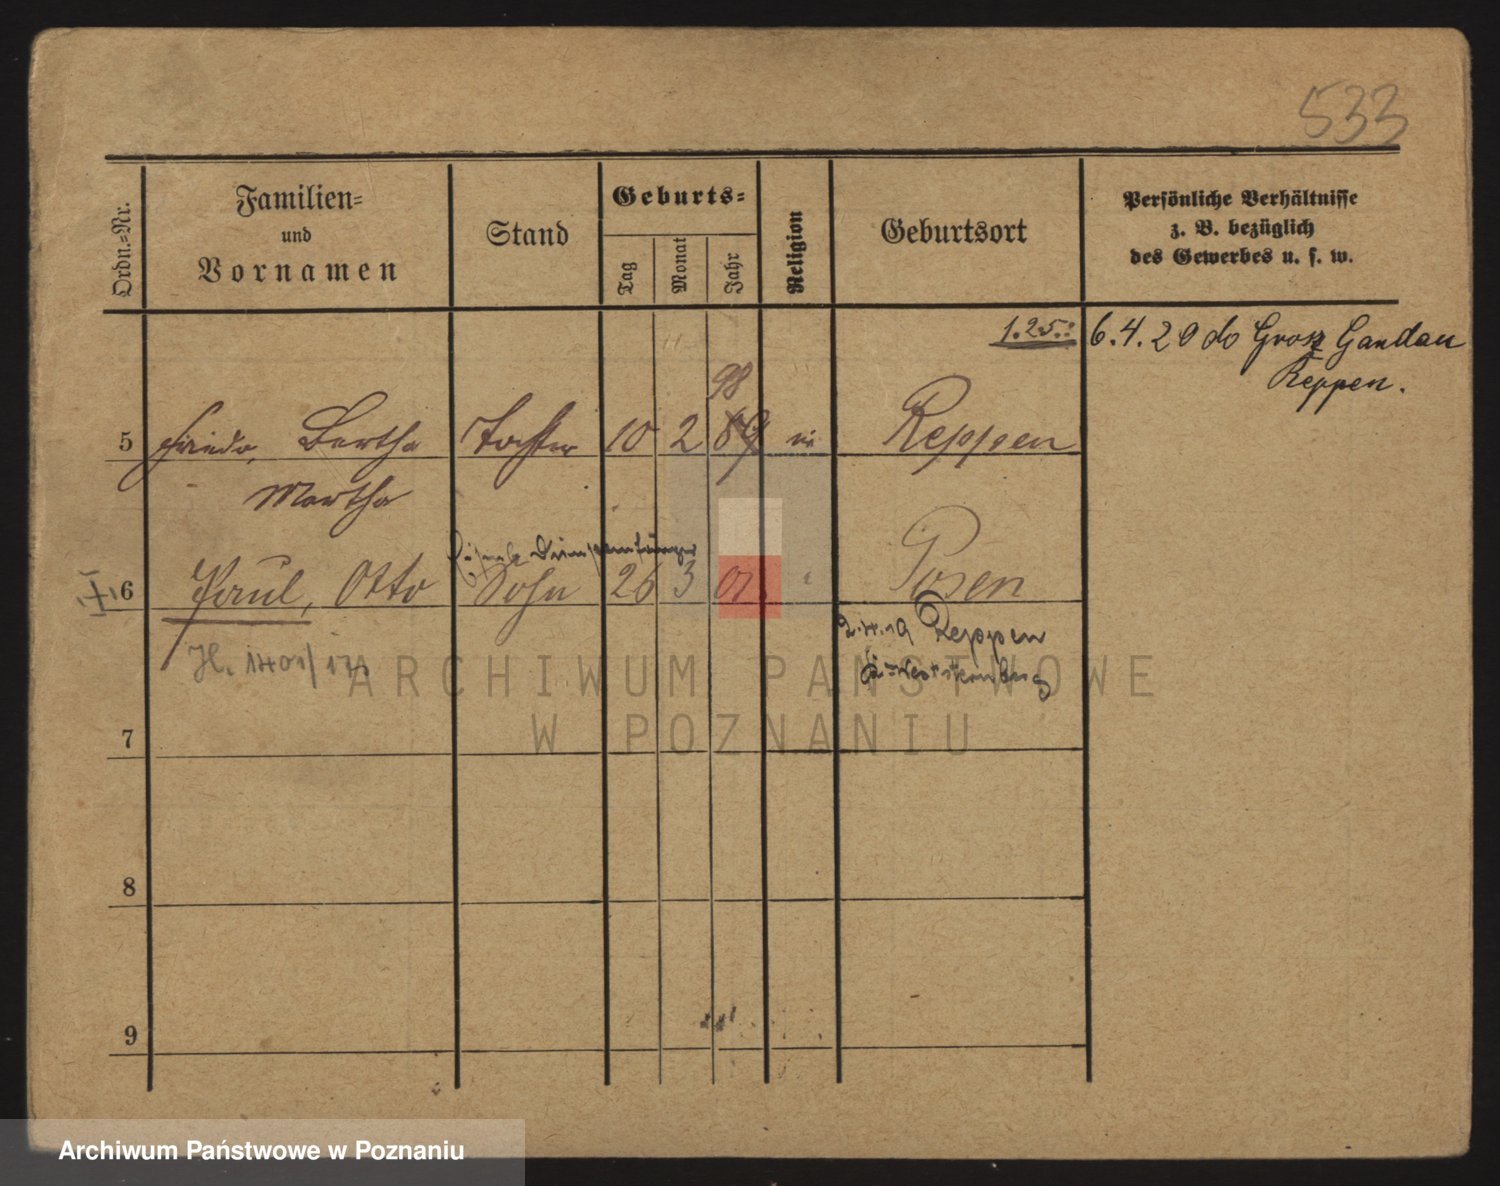 533
Ordn.-Nr.
Familien-
und
Vornamen
Stand
Geburts-
Tag
Monat
Jahr
Religion
Geburtsort
Persönliche Verhältnisse
z. B. bezüglich
des Gewerbes u. s. w.
1.25.: 6.4.20 do Gross Gandau
Reppen.
98
5 Frieda, Bertha Tochter 10 2 89 Reppen
Martha
6 Paul, Otto Sohn 26 3 01 Posen
2.4.19 Reppen
H. 1401/
ARCHIWUM PAŃSTWOWE
W POZNANIU
7
8
9
Archiwum Państwowe w Poznaniu